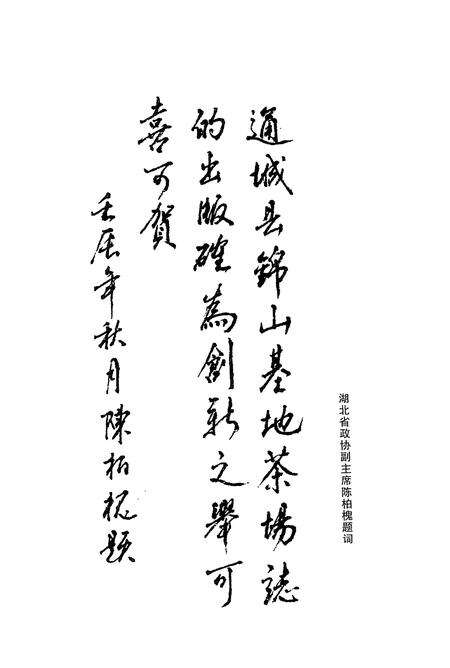 通城县錦山基地茶場誌
的出版確為創新之舉可
喜可賀
壬辰年秋月陳柏槐題
湖北省政协副主席陈柏槐题词